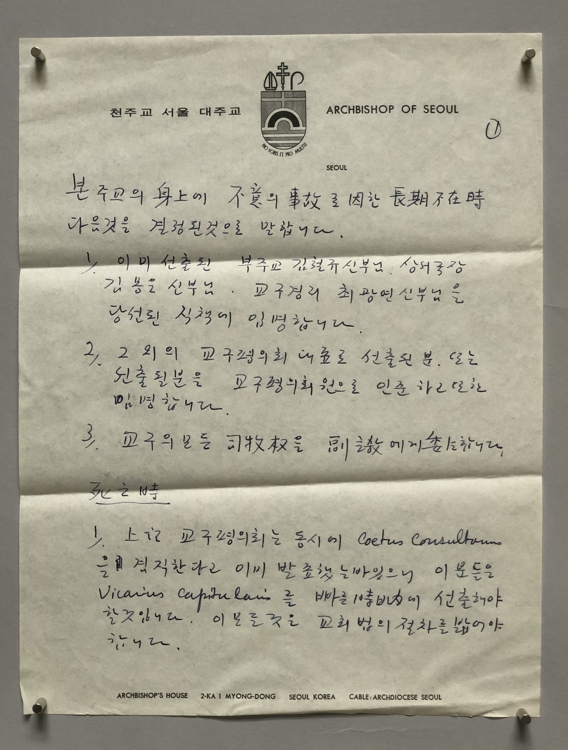 천주교 서울 대주교
ARCHBISHOP OF SEOUL
PRO VOBIS ET PRO MULTIS
SEOUL
①
본 주교의 身上에 不意의 事故로 因한 長期不在時
다음것을 결정된것으로 말합니다.
1/. 이미 선출된 부주교 김철규신부님, 상서국장
김몽은 신부님. 교구경리 최광연신부님을
당선된 직책에 임명합니다.
2/. 그 외의 교구평의회 대표로 선출된 분, 또는
선출될분을 교구평의회원으로 인준하고 또한
임명합니다.
3/. 교구의 모든 司牧权을 副主敎에게 委任합니다.
死亡時
1/. 上記 교구평의회는 동시에 Coetus Consultorum
을 겸직한다고 이미 발표했는바있으니 이분들은
Vicarius Capitularis를 빠른 時日内에 선출해야
할것입니다. 이 모든것은 교회법의 절차를 밟어야
합니다.
ARCHBISHOP'S HOUSE 2-KA 1 MYONG-DONG SEOUL KOREA CABLE: ARCHDIOCESE SEOUL